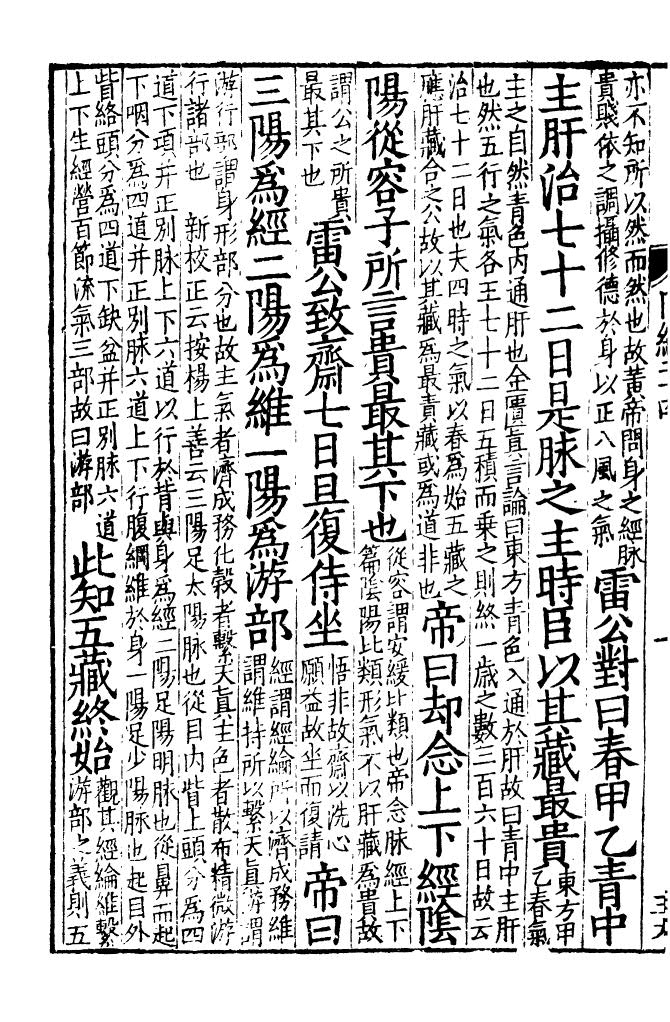 亦不知所以然而然也故黃帝問身之經脉
貴賤依之調攝修德於身以正八風之氣
雷公對曰春甲乙青中
主肝治七十二日是脉之主時臣以其藏最貴
東方甲
乙春氣
主之自然青色內通肝也金匱真言論曰東方青色入通於肝故曰青中主肝
也然五行之氣各王七十二日五積而乘之則終一歲之數三百六十日故云
治七十二日也夫四時之氣以春爲始五藏之
應肝藏合之公故以其藏爲最貴藏或爲道非也
帝曰却念上下經陰
陽從容子所言貴最其下也
從容謂安緩比類也帝念脉經上下
篇陰陽比類形氣不以肝藏爲貴故
謂公之所貴
最其下也
雷公致齋七日旦復侍坐
悟非故齋以洗心
願益故坐而復請
帝曰
三陽爲經二陽爲維一陽爲游部
經謂經綸所以濟成務維
謂維持所以繫天真游謂
游行部謂身形部分也故主氣者濟成務化穀者繫天真主色者散布精微游
行諸部也　新校正云按楊上善云三陽足太陽脉也從目內眥上頭分爲四
道下項并正別脉上下六道以行於背與身爲經二陽足陽明脉也從鼻而起
下咽分爲四道并正別脉六道上下行腹綱維於身一陽足少陽脉也起目外
眥絡頭分爲四道下缺盆并正別脉六道
上下生經營百節流氣三部故曰游部
此知五藏終始
觀其經綸維繫
游部之義則五